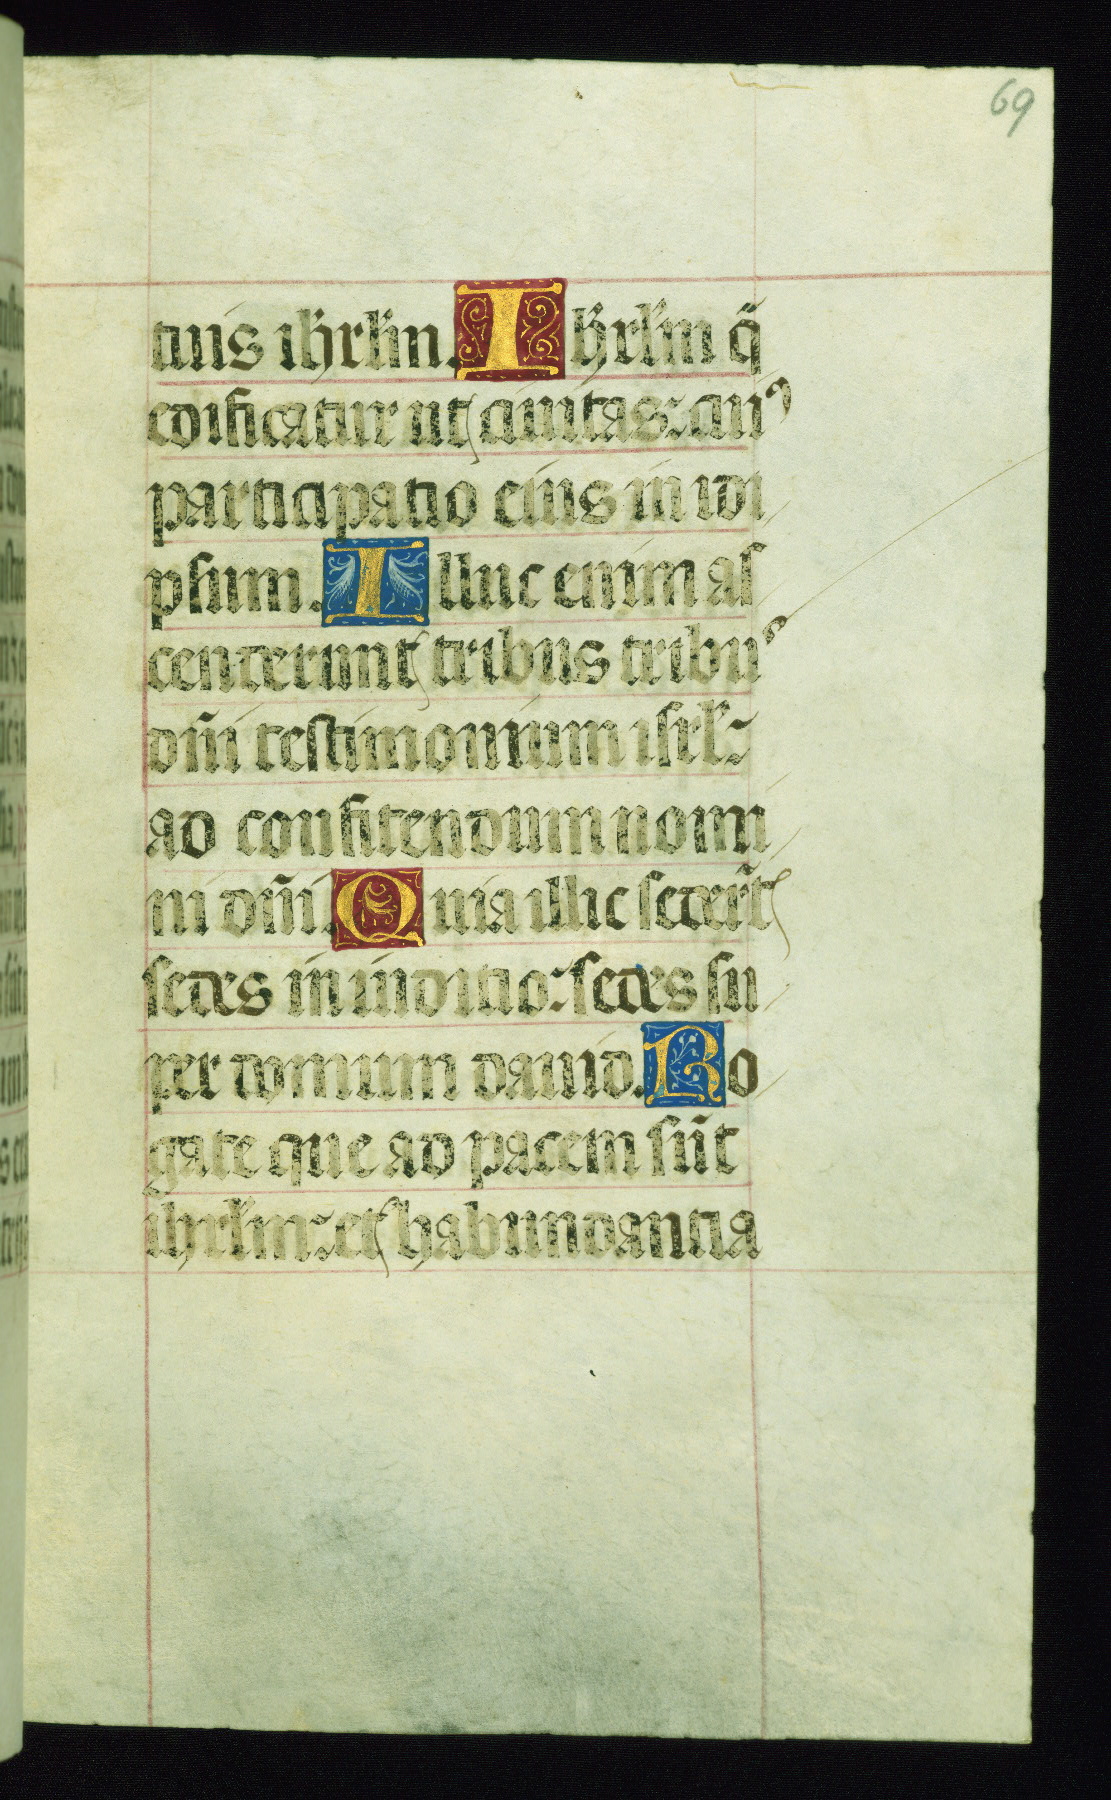 69
tuis ihrl̃m. Ihrl̃m q̃
edificatur ut ciuitas: cui⁹
participatio eius in idi
psum. Illuc enim as
cenderunt tribus tribu⁹
dñi testimonium isrl̃:
ad confitendum nomi
ni dñi. Quia illic sederr̃t
sedes in iuditio: sedes su
per domum dauid. Ro
gate que ad pacem sũt
ihrl̃m: et habundantia